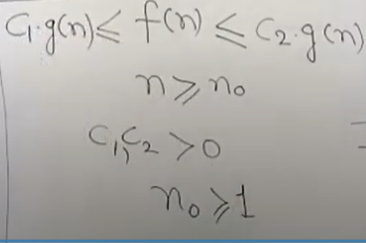 C₁·g(n) ≤ f(n) ≤ C₂·g(n)
n ≥ n₀
C₁, C₂ > 0
n₀ ≥ 1